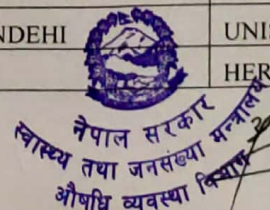 NDEHI UNIS
HER
नेपाल सरकार
स्वास्थ्य तथा जनसंख्या मन्त्रालय
औषधि व्यवस्था विभाग